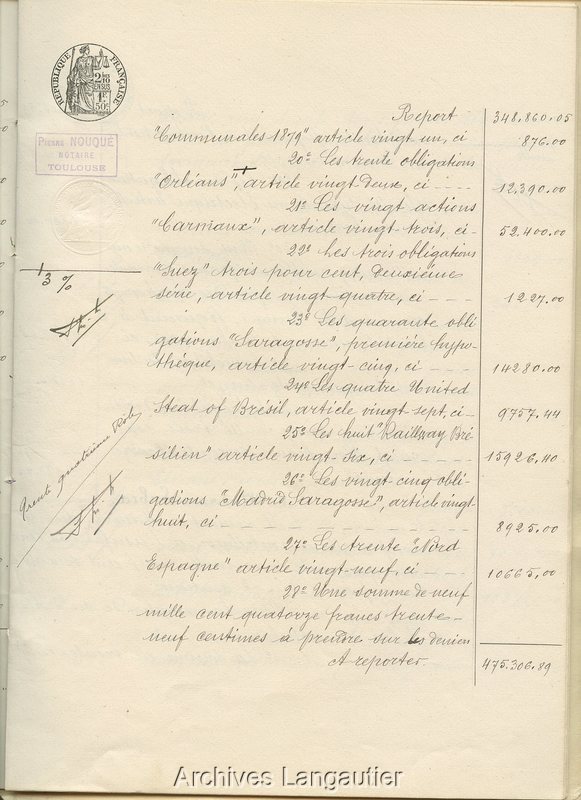 RÉPUBLIQUE FRANÇAISE
2 DIXES 10
EN SUS
1F
50c
PIERRE NOUQUÉ
NOTAIRE
TOULOUSE
Report 348.860.05
"Communales 1879" article vingt un, ci 876.00
20° Les trente obligations
"Orléans", article vingt-deux, ci - - - - 12.390.00
21° Les vingt actions
"Carmaux", article vingt trois, ci - 52.400.00
22° Les trois obligations
"Suez" trois pour cent, deuxième
série, article vingt quatre, ci - - - 1227.00
3 %
23° Les quarante obli
gations "Saragosse", première hypo-
thèque, article vingt-cinq, ci - - - 14280.00
24° Les quatre United
Steat of Brésil, article vingt sept, ci - 9757.44
25° Les huit "Railway Bré-
silien" article vingt-six, ci - - - 15926.40
26° Les vingt cinq obli-
gations "Madrid Saragosse", article vingt
huit, ci - - - - 8925.00
Trente quatrième Rôle
27° Les trente "Nord
Espagne" article vingt-neuf, ci - - - 10665,00
28° Une somme de neuf
mille cent quatorze francs trente-
neuf centimes à prendre sur les deniers
A reporter. 475.306.89
Archives Langautier